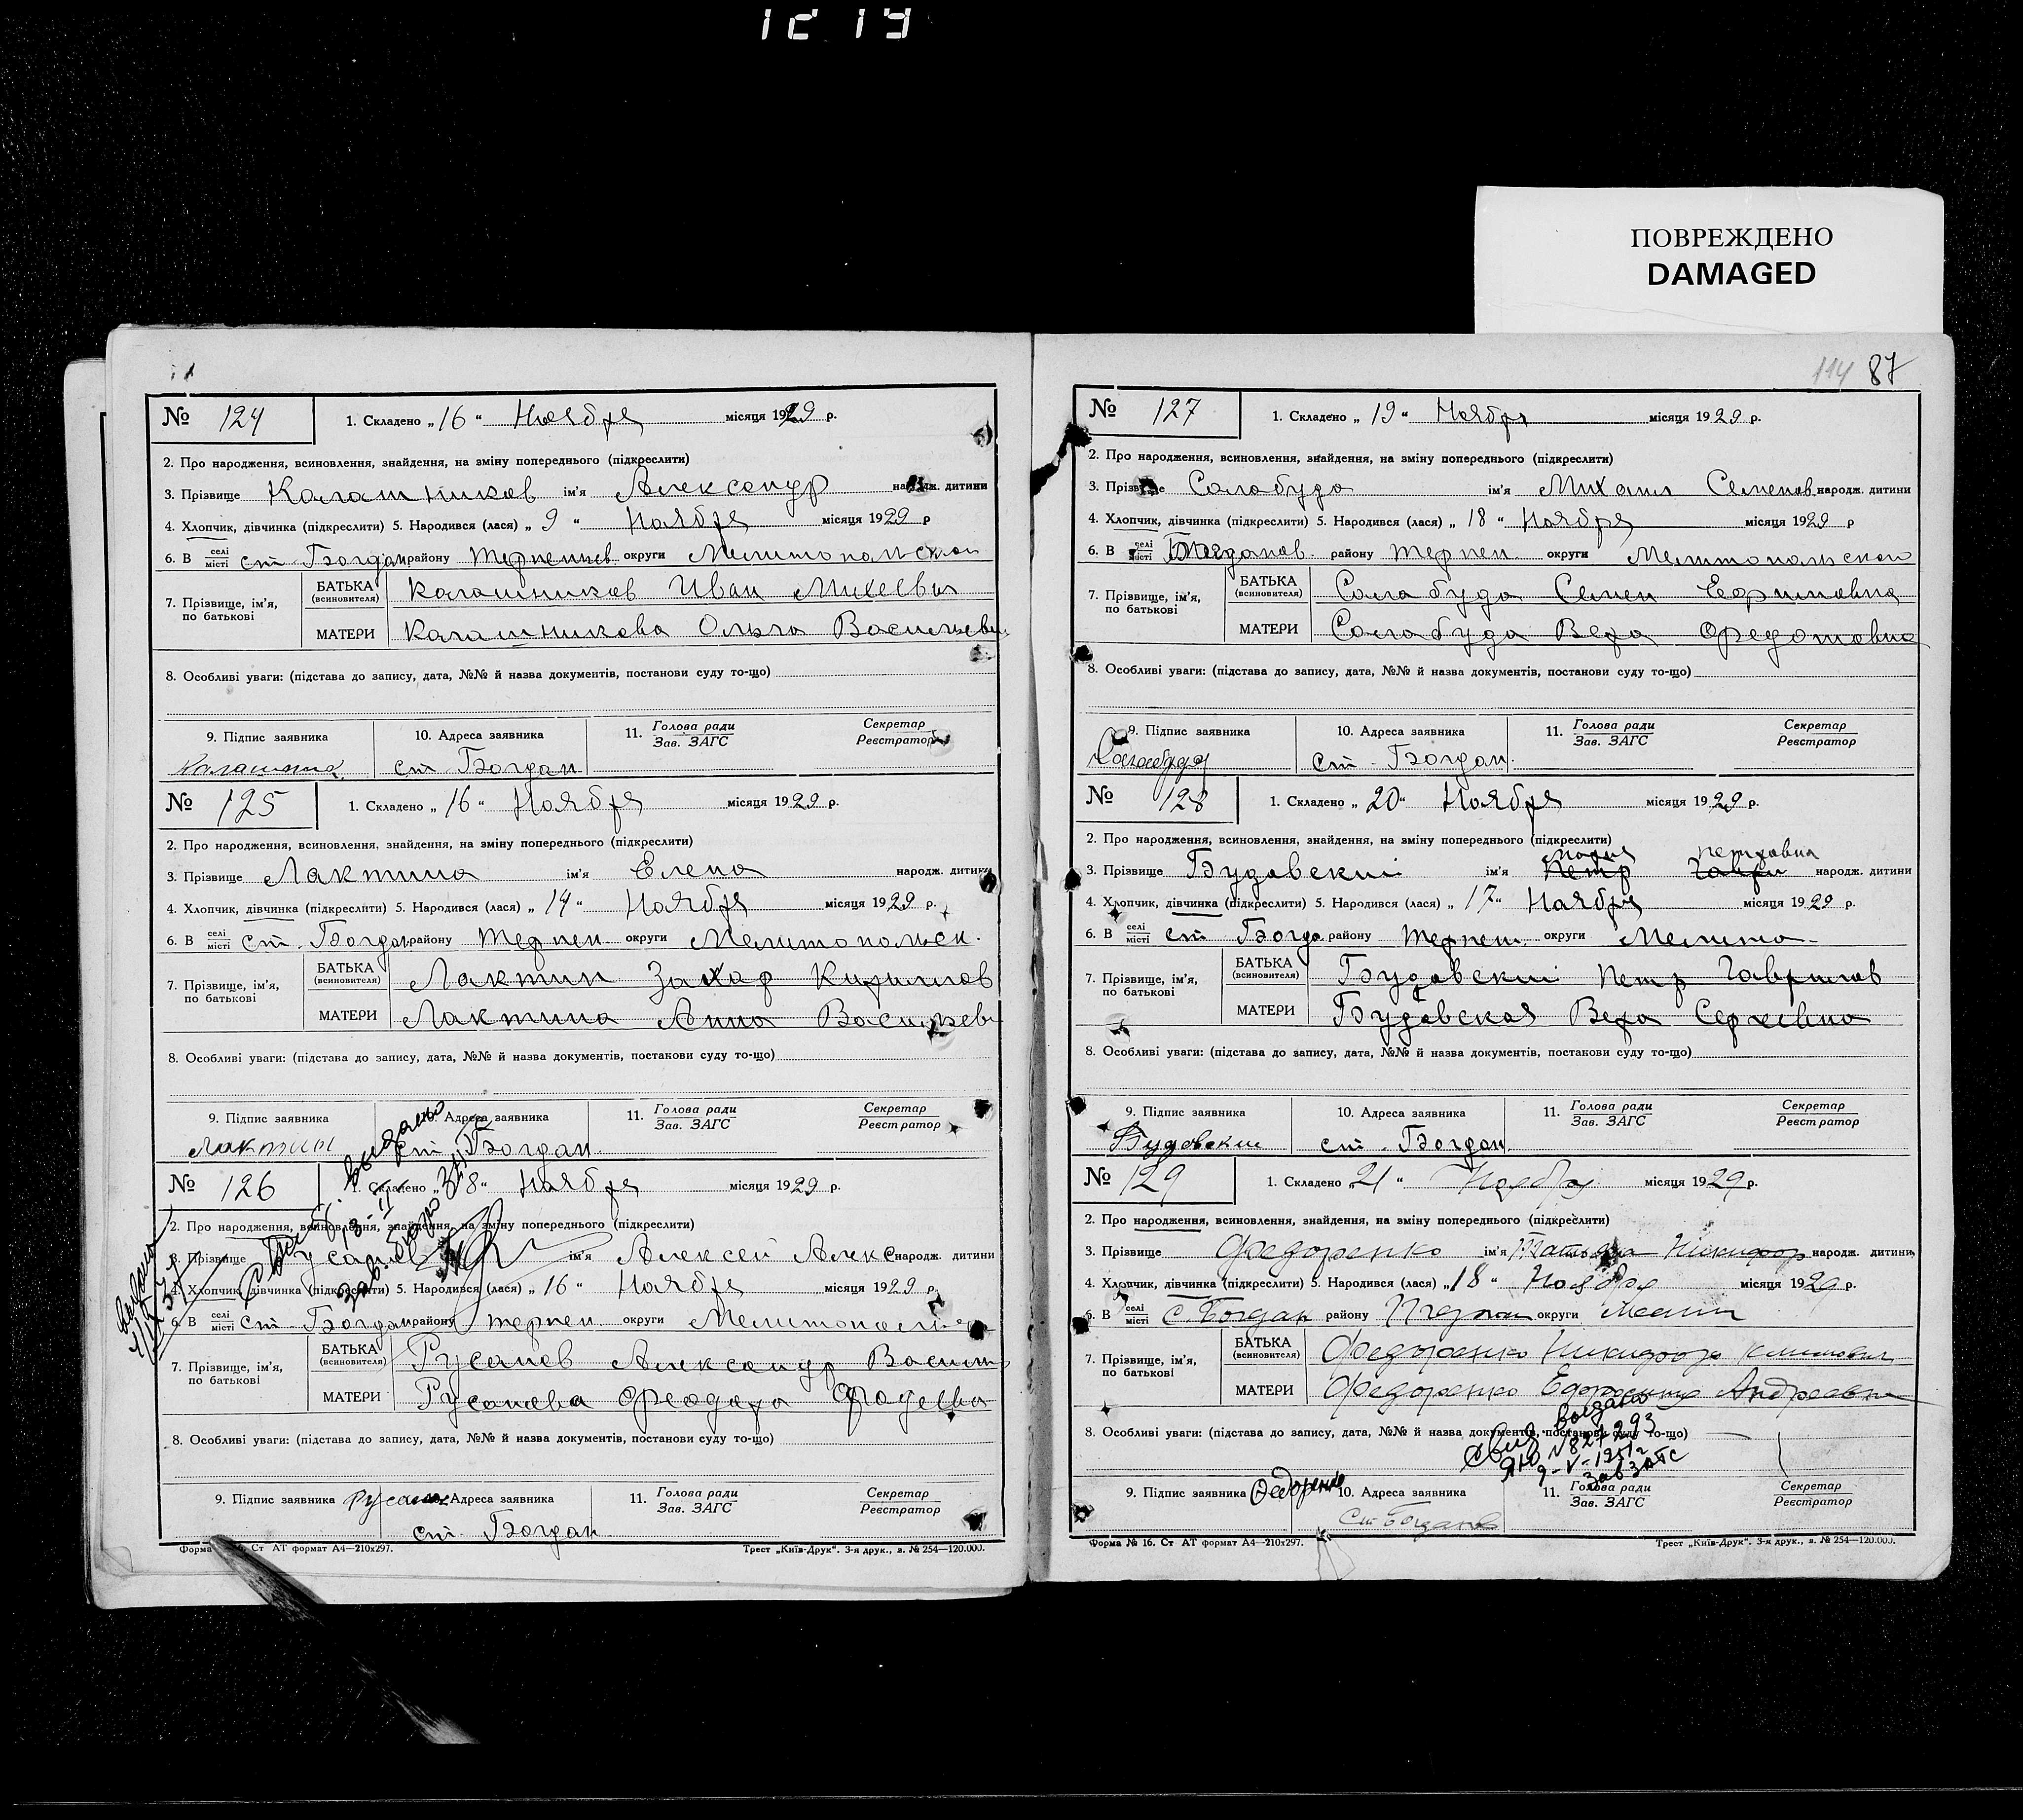 12 19
ПОВРЕЖДЕНО
DAMAGED
№ 124 1. Складено „16“ Ноября місяця 1929 р.
2. Про народження, всиновлення, знайдення, на зміну попереднього (підкреслити)
3. Прізвище Калашников ім'я Александр народж. дитини
4. Хлопчик, дівчинка (підкреслити) 5. Народився (лася) „ 9 “ Ноября місяця 1929 р
6. В селі місті ст Богдан району Терпен округи Мелитопольской
7. Прізвище, ім'я, по батькові
БАТЬКА (всиновителя) Калашников Иван Михеевич
МАТЕРИ Калашникова Ольга Васильевн
8. Особливі уваги: (підстава до запису, дата, №№ й назва документів, постанови суду то-що)
9. Підпис заявника 10. Адреса заявника 11. Голова ради Зав. ЗАГС Секретар Реєстратор
ст Богдан
№ 125 1. Складено „16“ Ноября місяця 1929 р.
2. Про народження, всиновлення, знайдення, на зміну попереднього (підкреслити)
3. Прізвище Лактина ім'я Елена народж. дитини
4. Хлопчик, дівчинка (підкреслити) 5. Народився (лася) „ 14 “ Ноября місяця 1929 р.
6. В селі місті ст. Богдан району Терпен. округи Мелитопольск.
7. Прізвище, ім'я, по батькові
БАТЬКА (всиновителя) Лактин Захар Кирилов
МАТЕРИ Лактина Анна Васильев
8. Особливі уваги: (підстава до запису, дата, №№ й назва документів, постанови суду то-що)
9. Підпис заявника 10. Адреса заявника 11. Голова ради Зав. ЗАГС Секретар Реєстратор
Лактин ст Богдан
№ 126 1. Складено „18“ Ноября місяця 1929 р.
2. Про народження, всиновлення, знайдення, на зміну попереднього (підкреслити)
3. Прізвище Русанов ім'я Алексей Алекс народж. дитини
4. Хлопчик, дівчинка (підкреслити) 5. Народився (лася) „ 16 “ Ноября місяця 1929 р.
6. В селі місті ст. Богдан району Терпен. округи
7. Прізвище, ім'я, по батькові
БАТЬКА (всиновителя) Русанов Александр Васил
МАТЕРИ Русанова Феодора Фадеевна
8. Особливі уваги: (підстава до запису, дата, №№ й назва документів, постанови суду то-що)
9. Підпис заявника Русанов Адреса заявника 11. Голова ради Зав. ЗАГС Секретар Реєстратор
ст. Богдан
Форма № 16. Ст АТ формат А4—210х297. Трест „Київ-Друк“. 3-я друк., з. № 254—120.000.
114 87
№ 127 1. Складено „ 19 “ Ноября місяця 1929 р.
2. Про народження, всиновлення, знайдення, на зміну попереднього (підкреслити)
3. Прізвище Солобуда ім'я Михаил Семенов народж. дитини
4. Хлопчик, дівчинка (підкреслити) 5. Народився (лася) „ 18 “ Ноября місяця 1929 р
6. В селі місті Богданов. району Терпен. округи Мелитопольской
7. Прізвище, ім'я, по батькові
БАТЬКА (всиновителя) Солобуда Семен
МАТЕРИ Солобуда Вера Федотовна
8. Особливі уваги: (підстава до запису, дата, №№ й назва документів, постанови суду то-що)
9. Підпис заявника 10. Адреса заявника 11. Голова ради Зав. ЗАГС Секретар Реєстратор
ст. Богдан.
№ 128 1. Складено „ 20 “ Ноября місяця 1929 р.
2. Про народження, всиновлення, знайдення, на зміну попереднього (підкреслити)
Мария Петровна
3. Прізвище Будавский ім'я Петр Гаври народж. дитини
4. Хлопчик, дівчинка (підкреслити) 5. Народився (лася) „ 17 “ Ноября місяця 1929 р.
6. В селі місті ст Богда району Терпен. округи Мелито-
7. Прізвище, ім'я, по батькові
БАТЬКА (всиновителя) Будавский Петр Гаврилов
МАТЕРИ Будавская Вера Сергеевна
8. Особливі уваги: (підстава до запису, дата, №№ й назва документів, постанови суду то-що)
9. Підпис заявника 10. Адреса заявника 11. Голова ради Зав. ЗАГС Секретар Реєстратор
Будовский ст. Богдан
№ 129 1. Складено „ 21 “ Ноября місяця 1929 р.
2. Про народження, всиновлення, знайдення, на зміну попереднього (підкреслити)
3. Прізвище Федоренко ім'я Татьяна Никифор народж. дитини
4. Хлопчик, дівчинка (підкреслити) 5. Народився (лася) „ 18 “ Ноября місяця 1929 р.
6. В селі місті С. Богдан району округи
7. Прізвище, ім'я, по батькові
БАТЬКА (всиновителя) Федоренко Никифор
МАТЕРИ Федоренко Андреевна
8. Особливі уваги: (підстава до запису, дата, №№ й назва документів, постанови суду то-що)
выдано
9-V-1951г
Зав ЗАГС
9. Підпис заявника Федоренко 10. Адреса заявника 11. Голова ради Зав. ЗАГС Секретар Реєстратор
Форма № 16. Ст АТ формат А4—210х297. Трест „Київ-Друк“. 3-я друк., з. № 254—120.000.